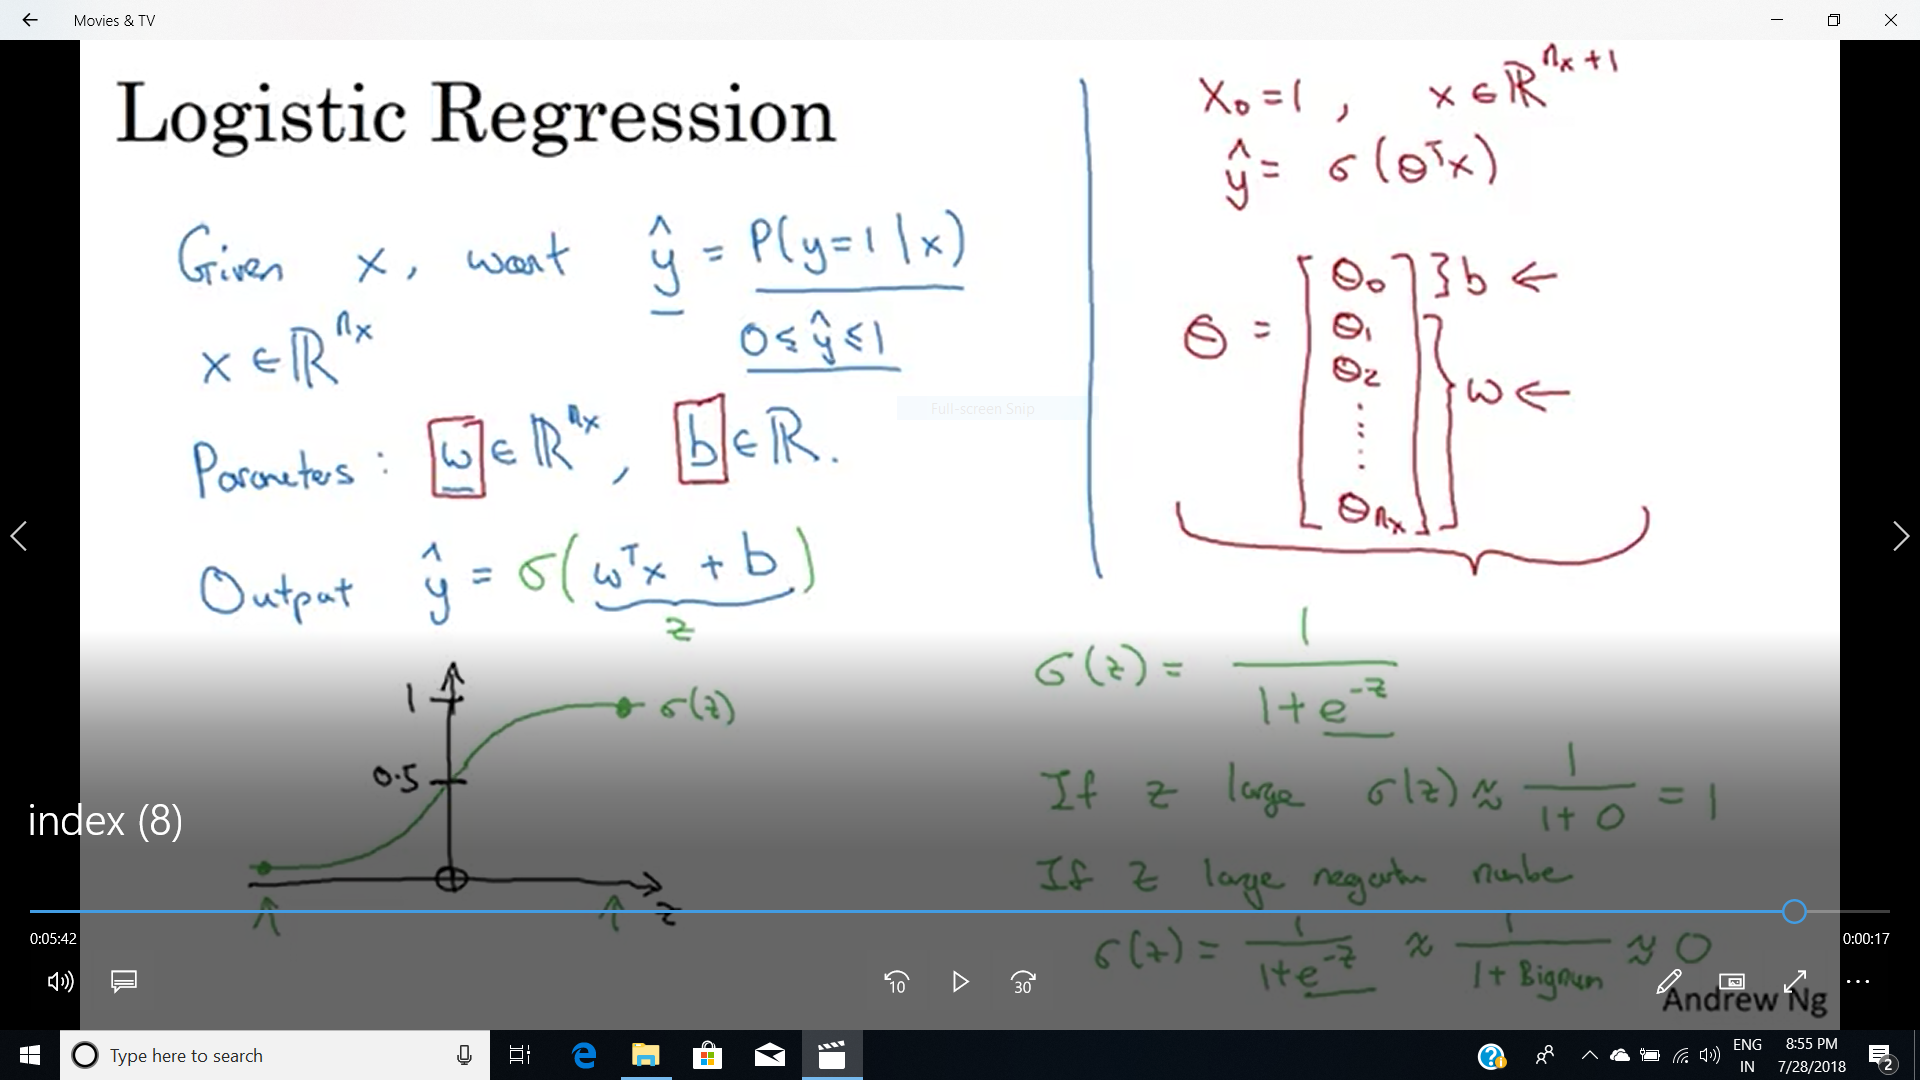 Movies & TV
Logistic Regression
Given x, want ŷ = P(y=1 | x)
x ∈ ℝ^{n_x}
0 ≤ ŷ ≤ 1
Parameters: w ∈ ℝ^{n_x}, b ∈ ℝ.
Output ŷ = σ(wᵀx + b)
z
1
0.5
σ(z)
z
X₀ = 1, x ∈ ℝ^{n_x+1}
ŷ = σ(θᵀx)
θ = [θ₀ θ₁ θ₂ ⋮ θ_{n_x}]
} b ←
} w ←
Full-screen Snip
σ(z) = 1/(1+e^{-z})
If z large σ(z) ≈ 1/(1+0) = 1
If z large negative number
σ(z) = 1/(1+e^{-z}) ≈ 1/(1+Bignum) ≈ 0
Andrew Ng
index (8)
0:05:42
0:00:17
10
30
Type here to search
ENG
IN
8:55 PM
7/28/2018
2